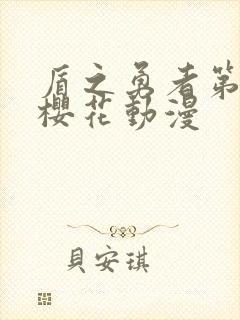 盾之勇者第
櫻花動漫
貝安琪